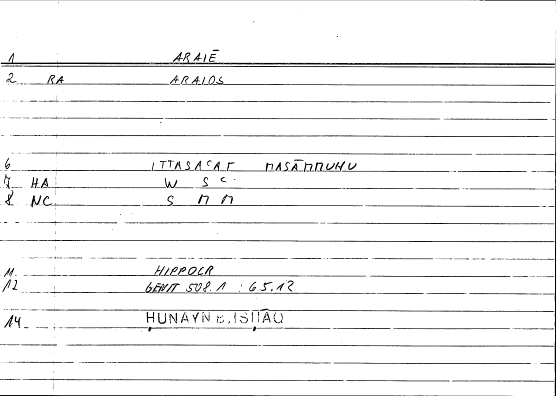 1 ARAIĒ
2 RA ARAIOS
6 ITTASACAT MASĀMMUHU
7 HA W S C
8 NC S M M
11 HIPPOCR
12 GENIT 508.1 : 65.12
14 ḤUNAYN B. ISḤĀQ